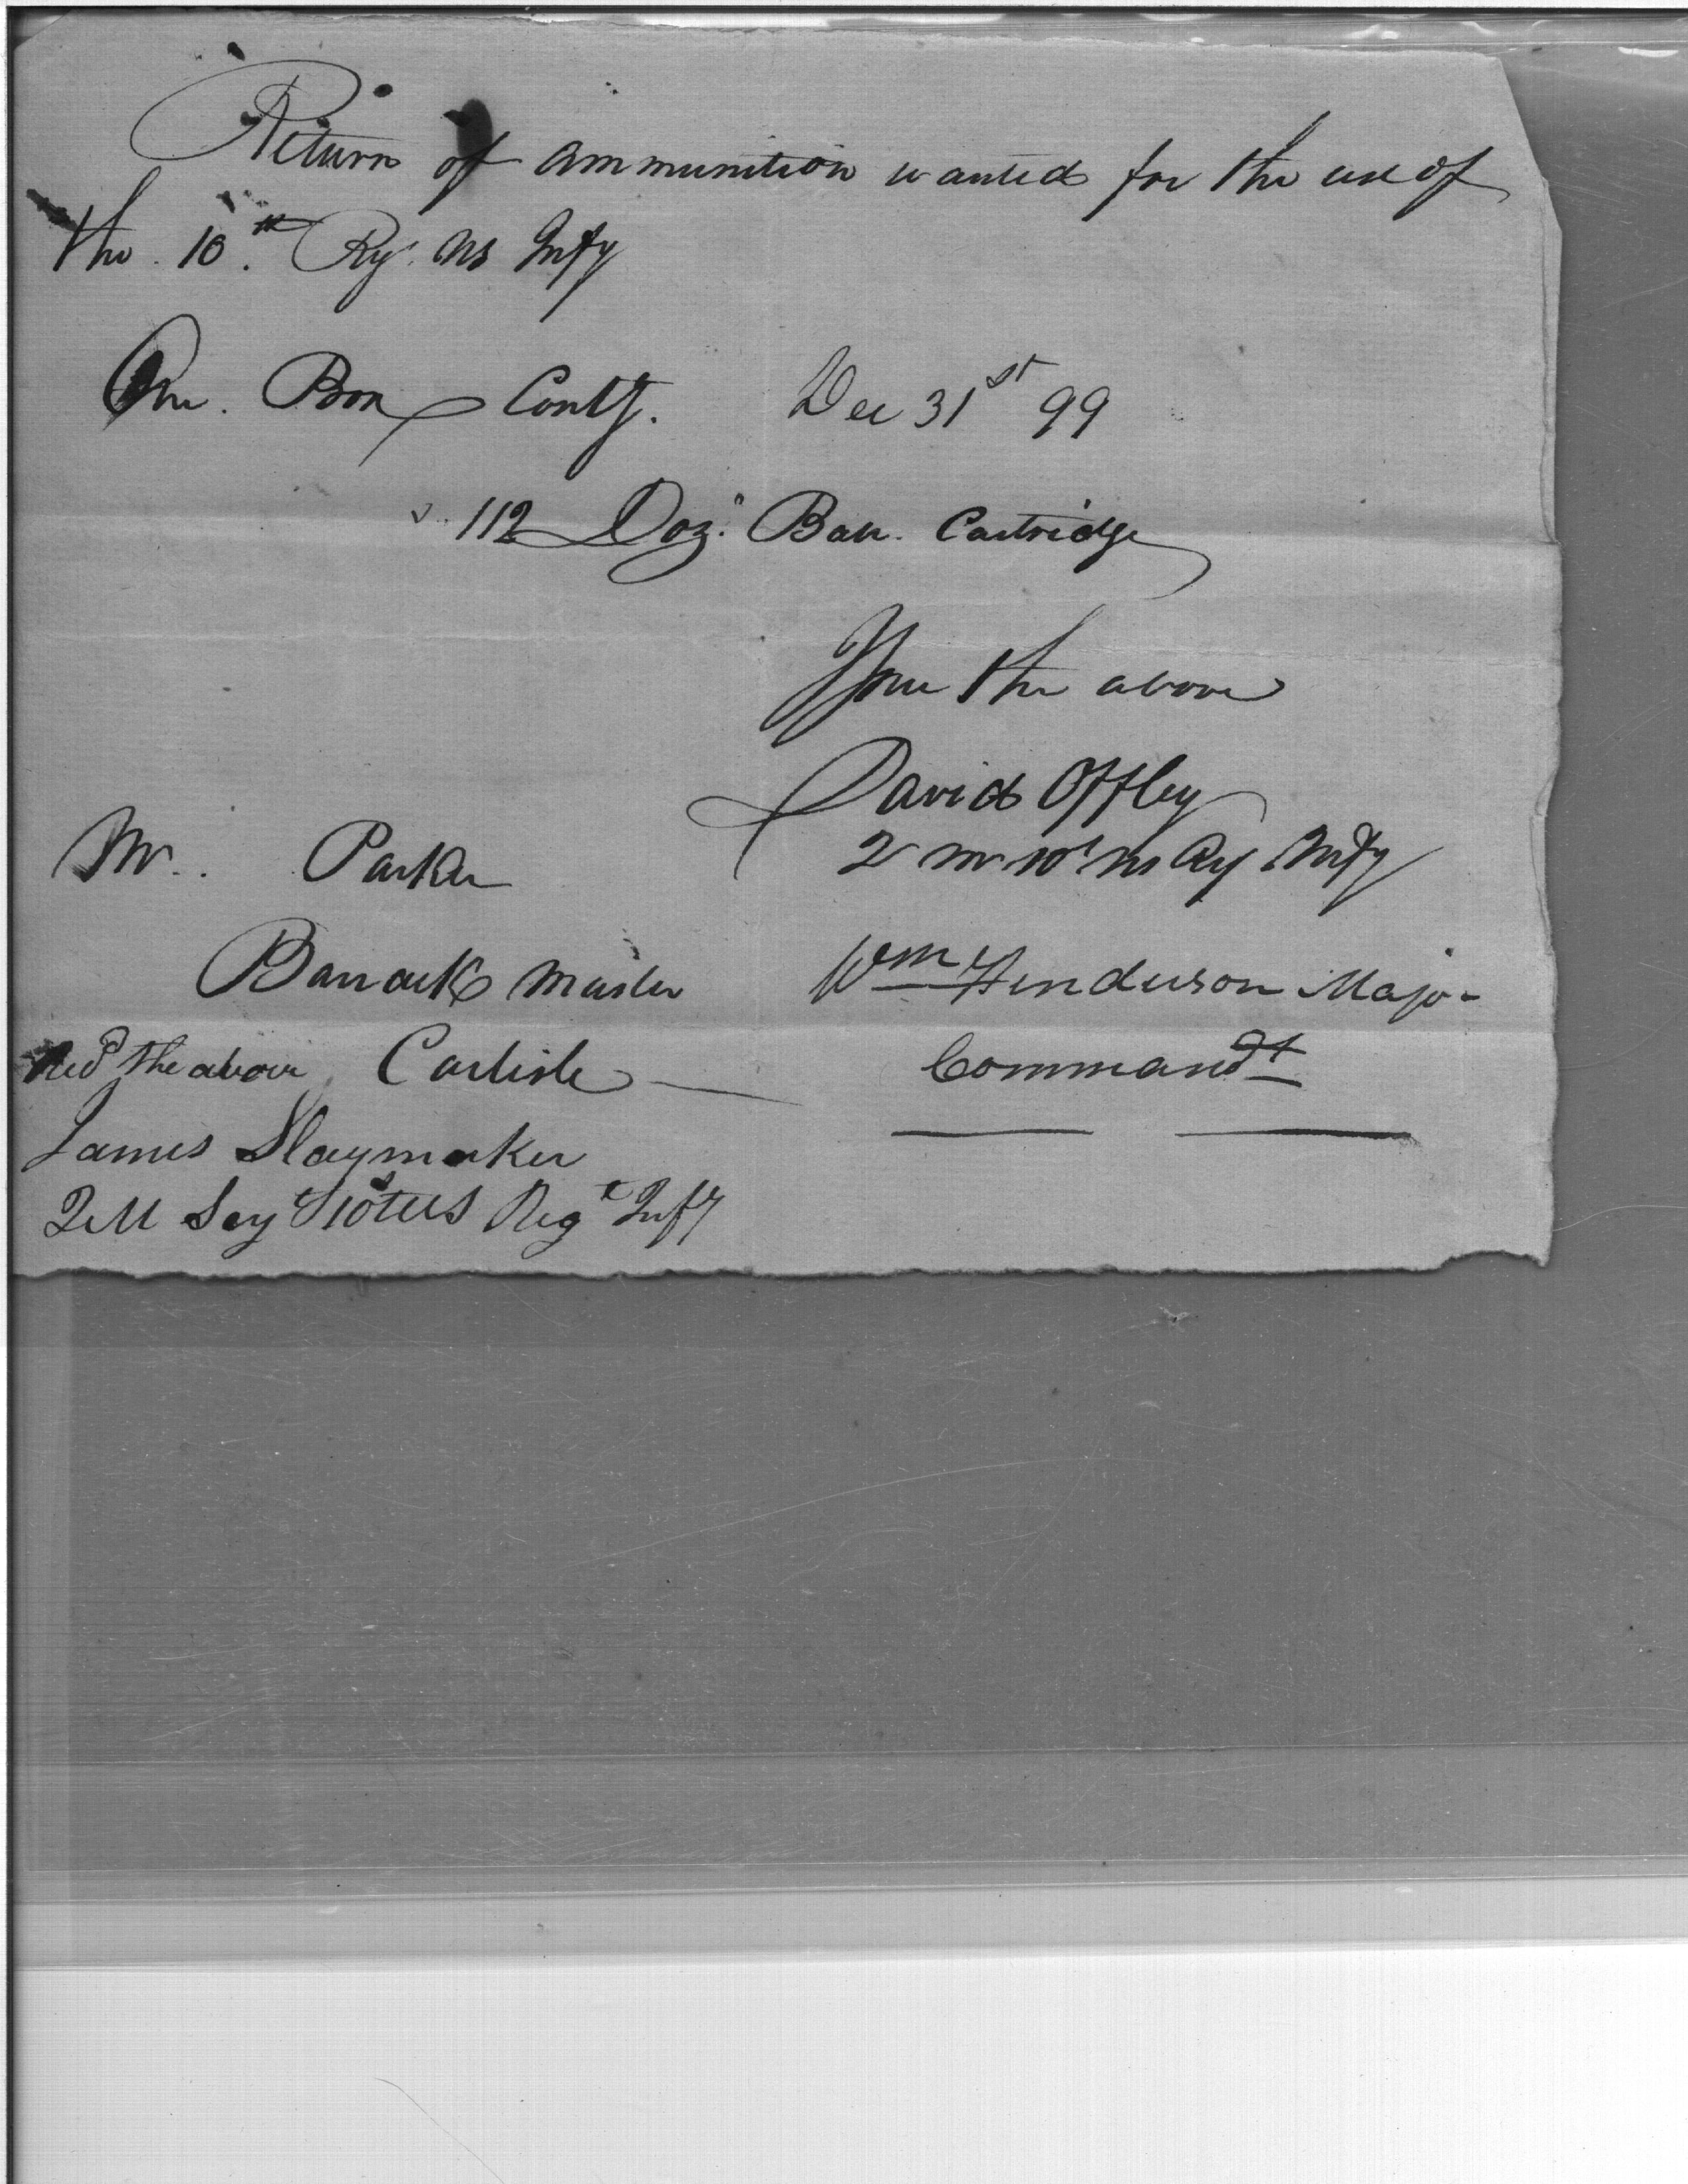 Return of ammunition wanted for the use of
the 10th Rgt. US Infy
One Box Contg. Dec 31st 99
112 Doz: Ball Cartridge
Issue the above
David Offley
Q M 10t US Rgt Infy
Mr. Parker
Barrack Master
Carlisle
Wm Henderson Major
Commandt
Recd the above
James Slaymaker
QM Serg 10t US Regt Infy